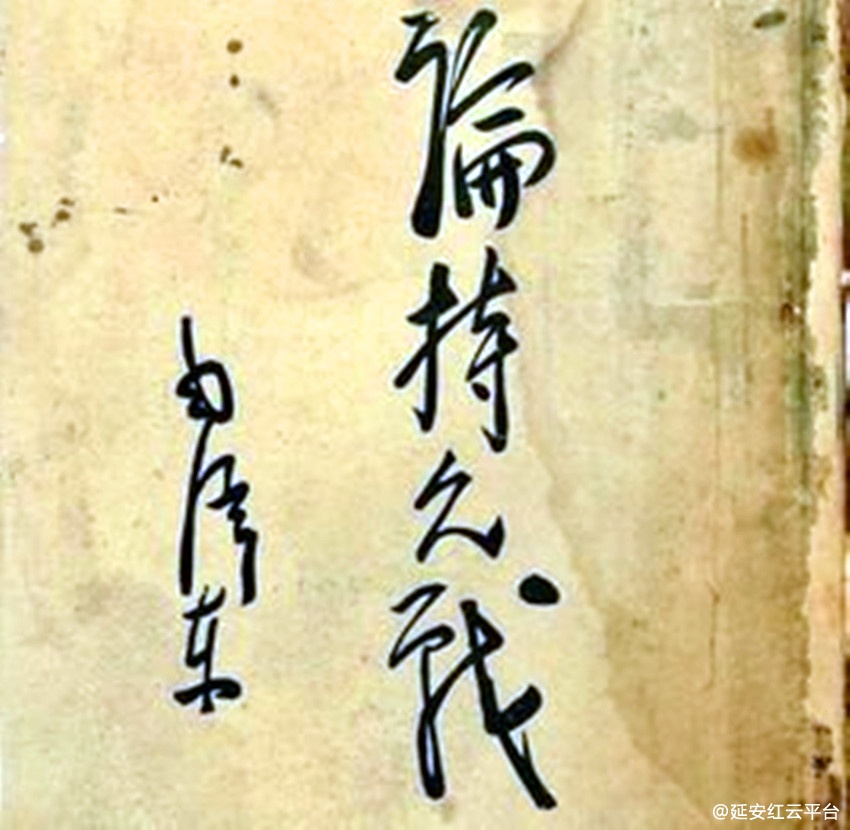 論持久戰
毛澤东
@延安红云平台